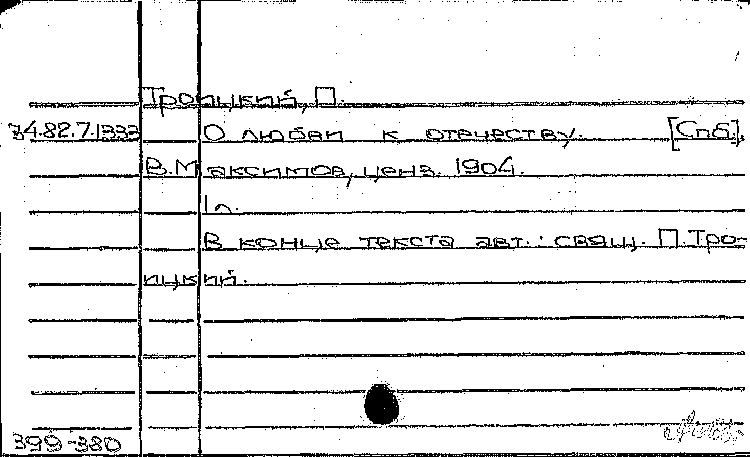 Троицкий, П.
34.82.7.1333 О любви к отечеству. [Спб],
В.Максимов, ценз. 1904.
1л.
В конце текста авт.: свящ. П.Тро-
ицкий.
399-380